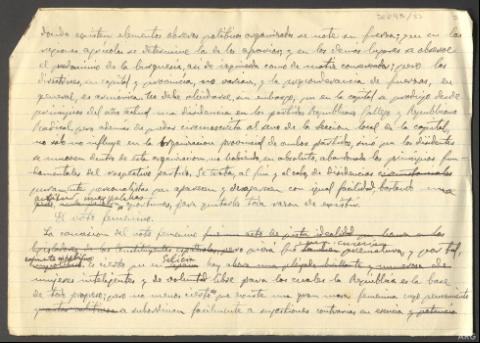 donde existen elementos obreros políticos organizados se note su fuerza; que en las
regiones agrícolas se determine la de los agrarios; y en los demás lugares se observe
el predominio de la burguesía, así de izquierda como de matiz conservador; pero las
directivas, en capital y provincia, no varían, y la preponderancia de fuerzas, en
general, es No debe olvidarse, sin embargo, que en la capital se produjo desde
principios del año actual una disidencia en los partidos Republicano Gallego y Republicano
Radical, pero además de quedar circunscrita al seno de la sección local en la capital,
no solo no influye en la organización provincial de ambos partidos, sino que los disidentes
se mueven dentro de esta organización, no habiendo, en absoluto, abandonado los principios fun-
damentales del respectivo partido. Se trata, al fin y al cabo, de disidencias
puramente personalistas que aparecen y desaparecen con igual facilidad, bastando una
actitud
oportuna, para quitarles toda razón de existir.
El voto femenino.
La concesión del voto femenino fue un acto de justa idealidad que
legisladores de las Constituyentes españolas, pero quizá fue prematuro, y por tal,
es cierto que en Galicia hay
mujeres inteligentes y de voluntad libre para las cuales la República es la base
de todo progreso; pero no menos cierto que existe una gran masa femenina cuyo pensamiento
a subordinan fácilmente a sugestiones contrarias en esencia y potencia
ARG